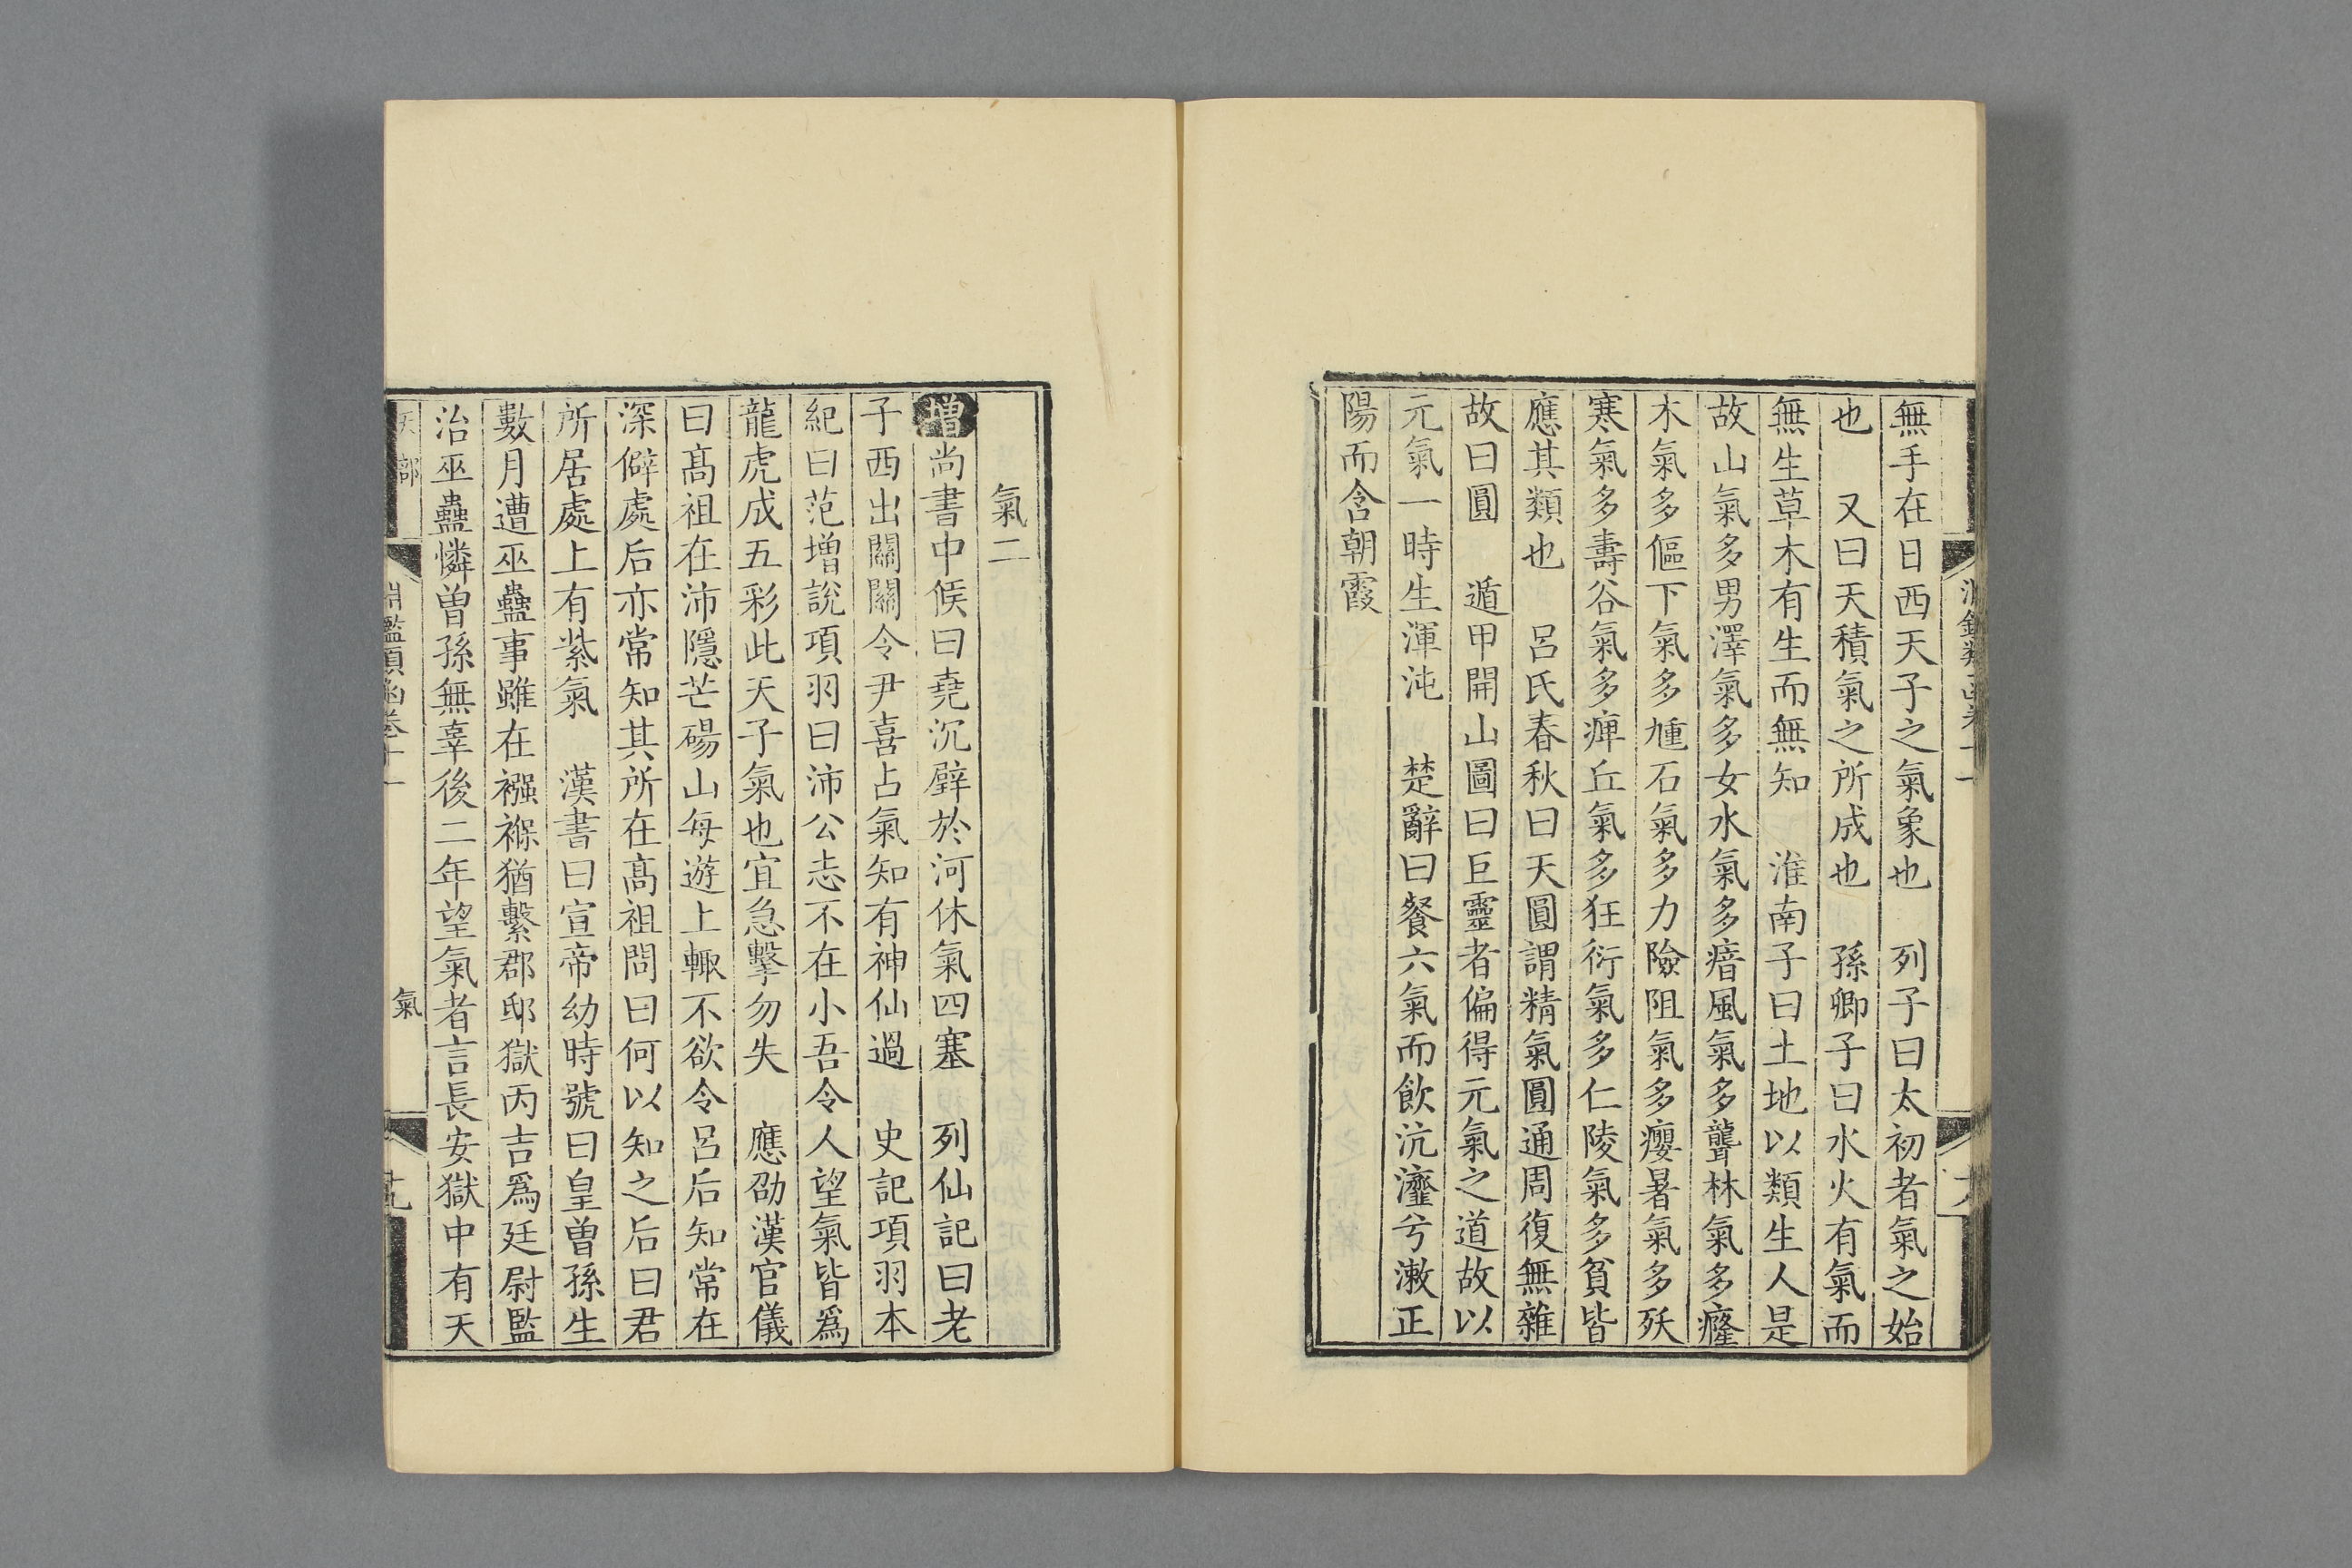 無手在日西天子之氣象也　列子曰太初者氣之始
也　又曰天積氣之所成也　孫卿子曰水火有氣而
無生草木有生而無知　淮南子曰土地以類生人是
故山氣多男澤氣多女水氣多瘖風氣多聾林氣多癃
木氣多傴下氣多尰石氣多力險阻氣多癭暑氣多殀
寒氣多壽谷氣多痺丘氣多狂衍氣多仁陵氣多貧皆
應其類也　呂氏春秋曰天圓謂精氣圓通周復無雜
故曰圓　遁甲開山圖曰巨靈者偏得元氣之道故以
元氣一時生渾沌　楚辭曰餐六氣而飲沆瀣兮漱正
陽而含朝霞
氣二
增尚書中候曰堯沉璧於河休氣四塞　列仙記曰老
子西出關關令尹喜占氣知有神仙過　史記項羽本
紀曰范增說項羽曰沛公志不在小吾令人望氣皆爲
龍虎成五彩此天子氣也宜急擊勿失　應劭漢官儀
曰髙祖在沛隱芒碭山每遊上輙不欲令呂后知常在
深僻處后亦常知其所在髙祖問曰何以知之后曰君
所居處上有紫氣　漢書曰宣帝幼時號曰皇曾孫生
數月遭巫蠱事雖在襁褓猶繫郡邸獄丙吉爲廷尉監
治巫蠱憐曾孫無辜後二年望氣者言長安獄中有天
天部　淵鑑類函卷十一　氣　十九